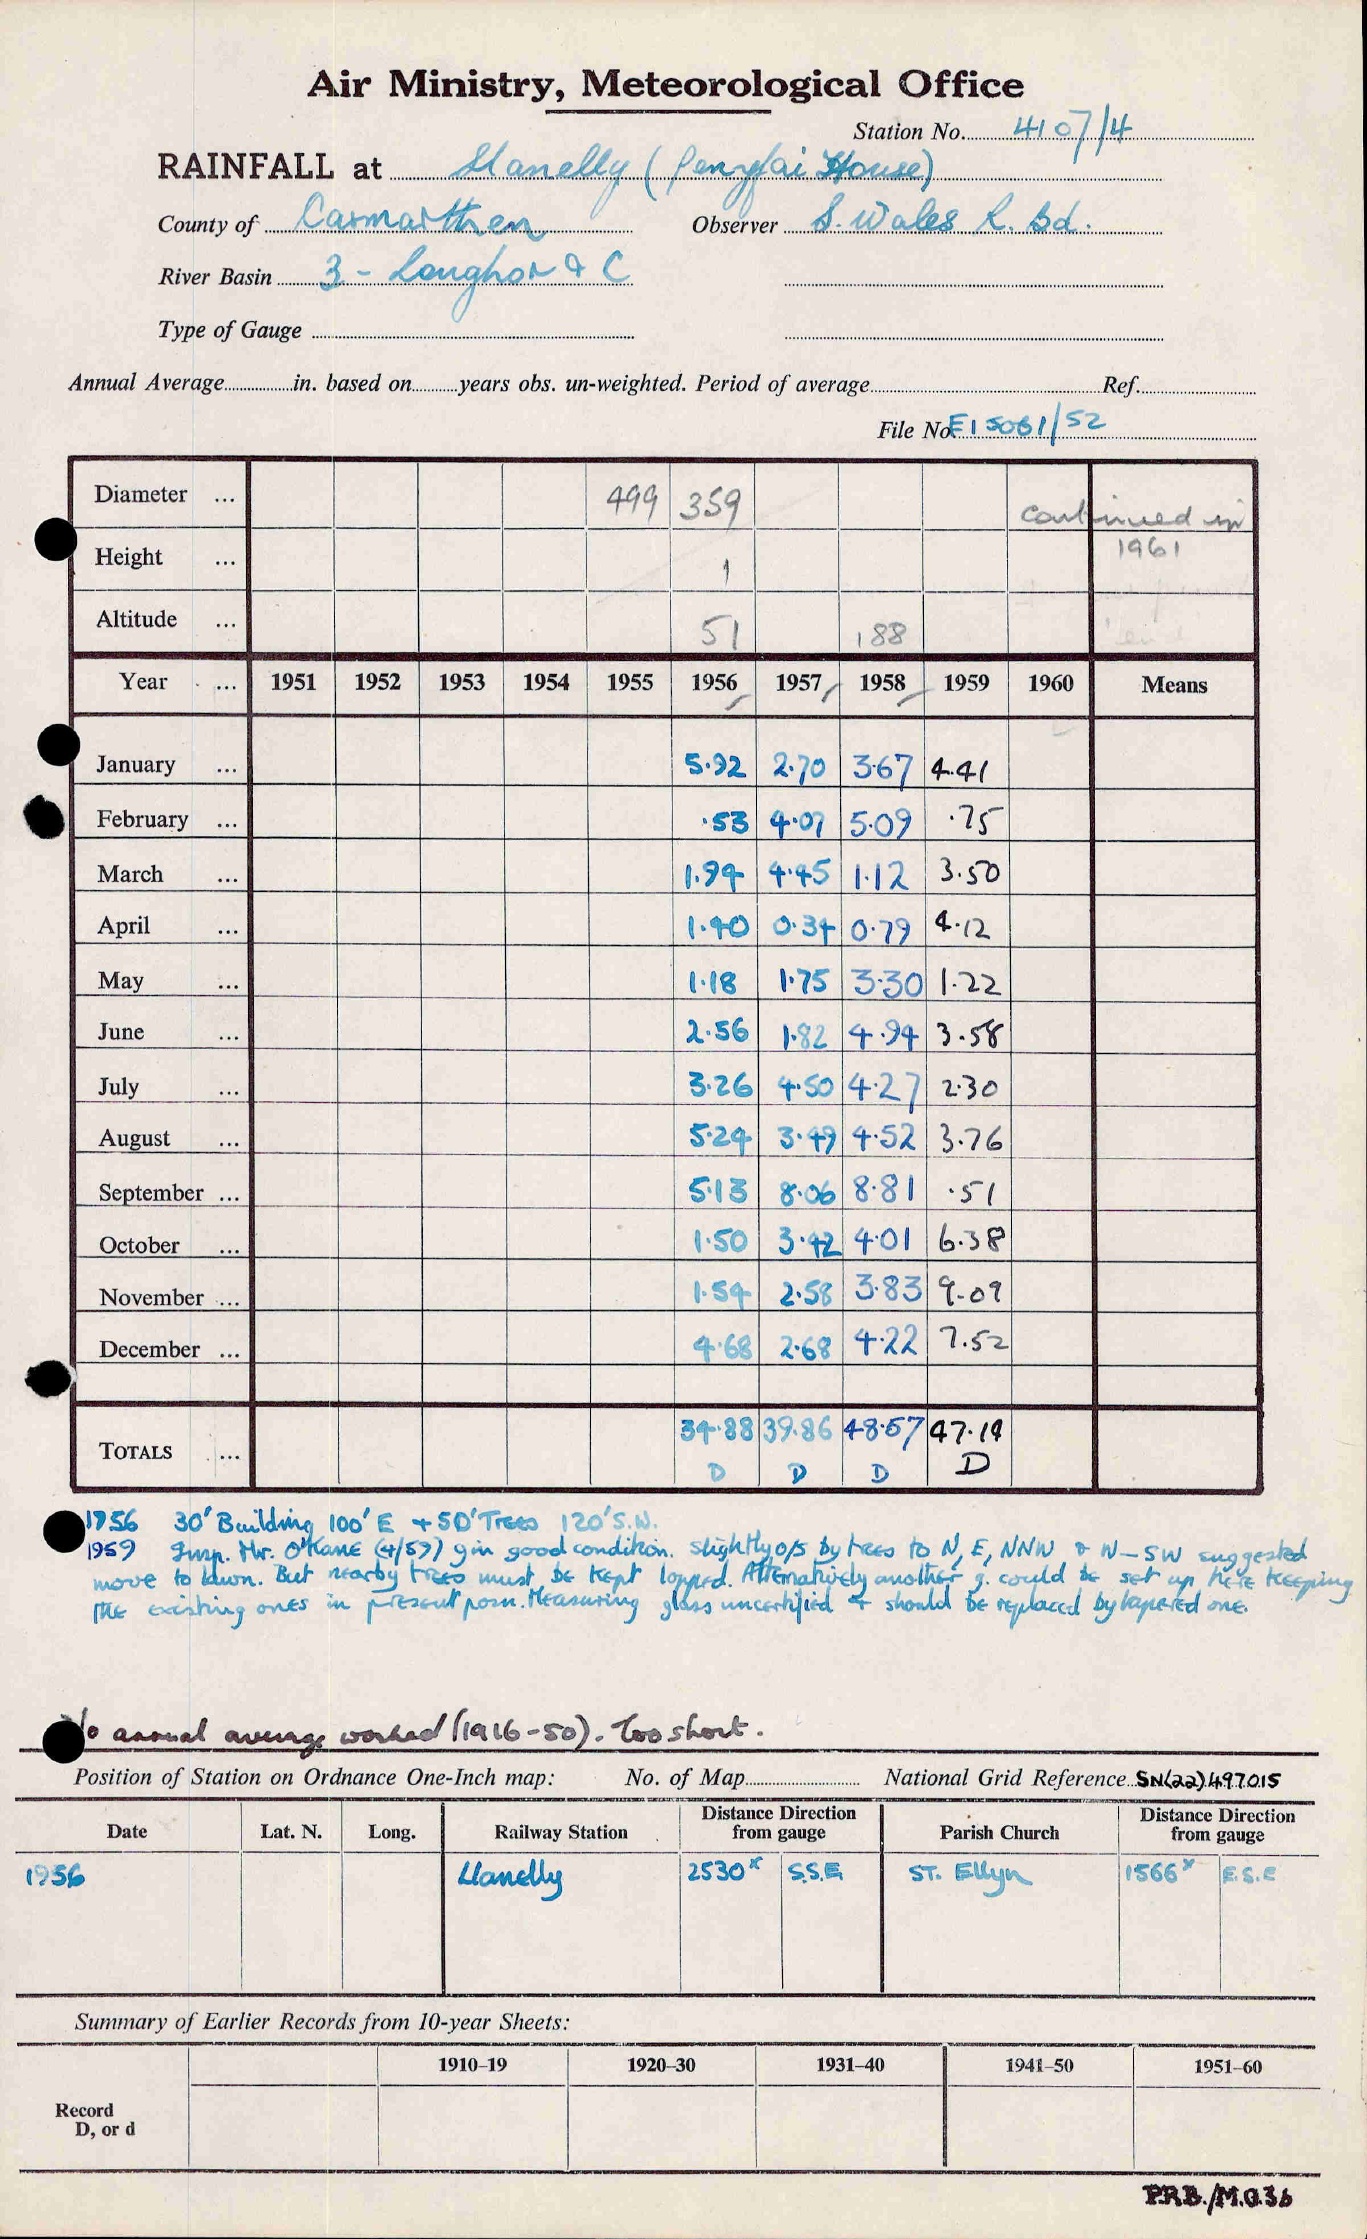 Air Ministry, Meteorological Office
Station No. 4107/4
RAINFALL at Llanelly (Penyfai House)
County of Carmarthen Observer S. Wales R. Bd.
River Basin 3 - Loughor & C
Type of Gauge
Annual Average in. based on years obs. un-weighted. Period of average Ref.
File No. E15061/52
Diameter ... 499 359 continued in
Height ... 1 1961
Altitude ... 51 188
Year ... 1951 1952 1953 1954 1955 1956 1957 1958 1959 1960 Means
January ... 5.92 2.70 3.67 4.41
February ... .53 4.07 5.09 .75
March ... 1.94 4.45 1.12 3.50
April ... 1.40 0.34 0.79 4.12
May ... 1.18 1.75 3.30 1.22
June ... 2.56 1.82 4.94 3.58
July ... 3.26 4.50 4.27 2.30
August ... 5.24 3.49 4.52 3.76
September ... 5.13 8.06 8.81 .51
October ... 1.50 3.42 4.01 6.38
November ... 1.54 2.58 3.83 9.09
December ... 4.68 2.68 4.22 7.52
TOTALS ... 34.88 39.86 48.57 47.14
D D D D
1956 30' Building 100' E + 50' Trees 120' S.W.
1959 Insp. Mr. O'Kane (4/59) g in good condition. slightly o/s by trees to N, E, NNW & W-SW suggested
move to lawn. But nearby trees must be kept lopped. Alternatively another g. could be set up here keeping
the existing ones in present posn. Measuring glass uncertified & should be replaced by tapered one.
No annual average worked (1916-50). Too short.
Position of Station on Ordnance One-Inch map: No. of Map National Grid Reference SN(22)497015
Date Lat. N. Long. Railway Station Distance Direction from gauge Parish Church Distance Direction from gauge
1956 Llanelly 2530x S.S.E ST. Ellyn 1566x E.S.E
Summary of Earlier Records from 10-year Sheets:
1910–19 1920–30 1931–40 1941–50 1951–60
Record
D, or d
P.R.B./M.O.3b